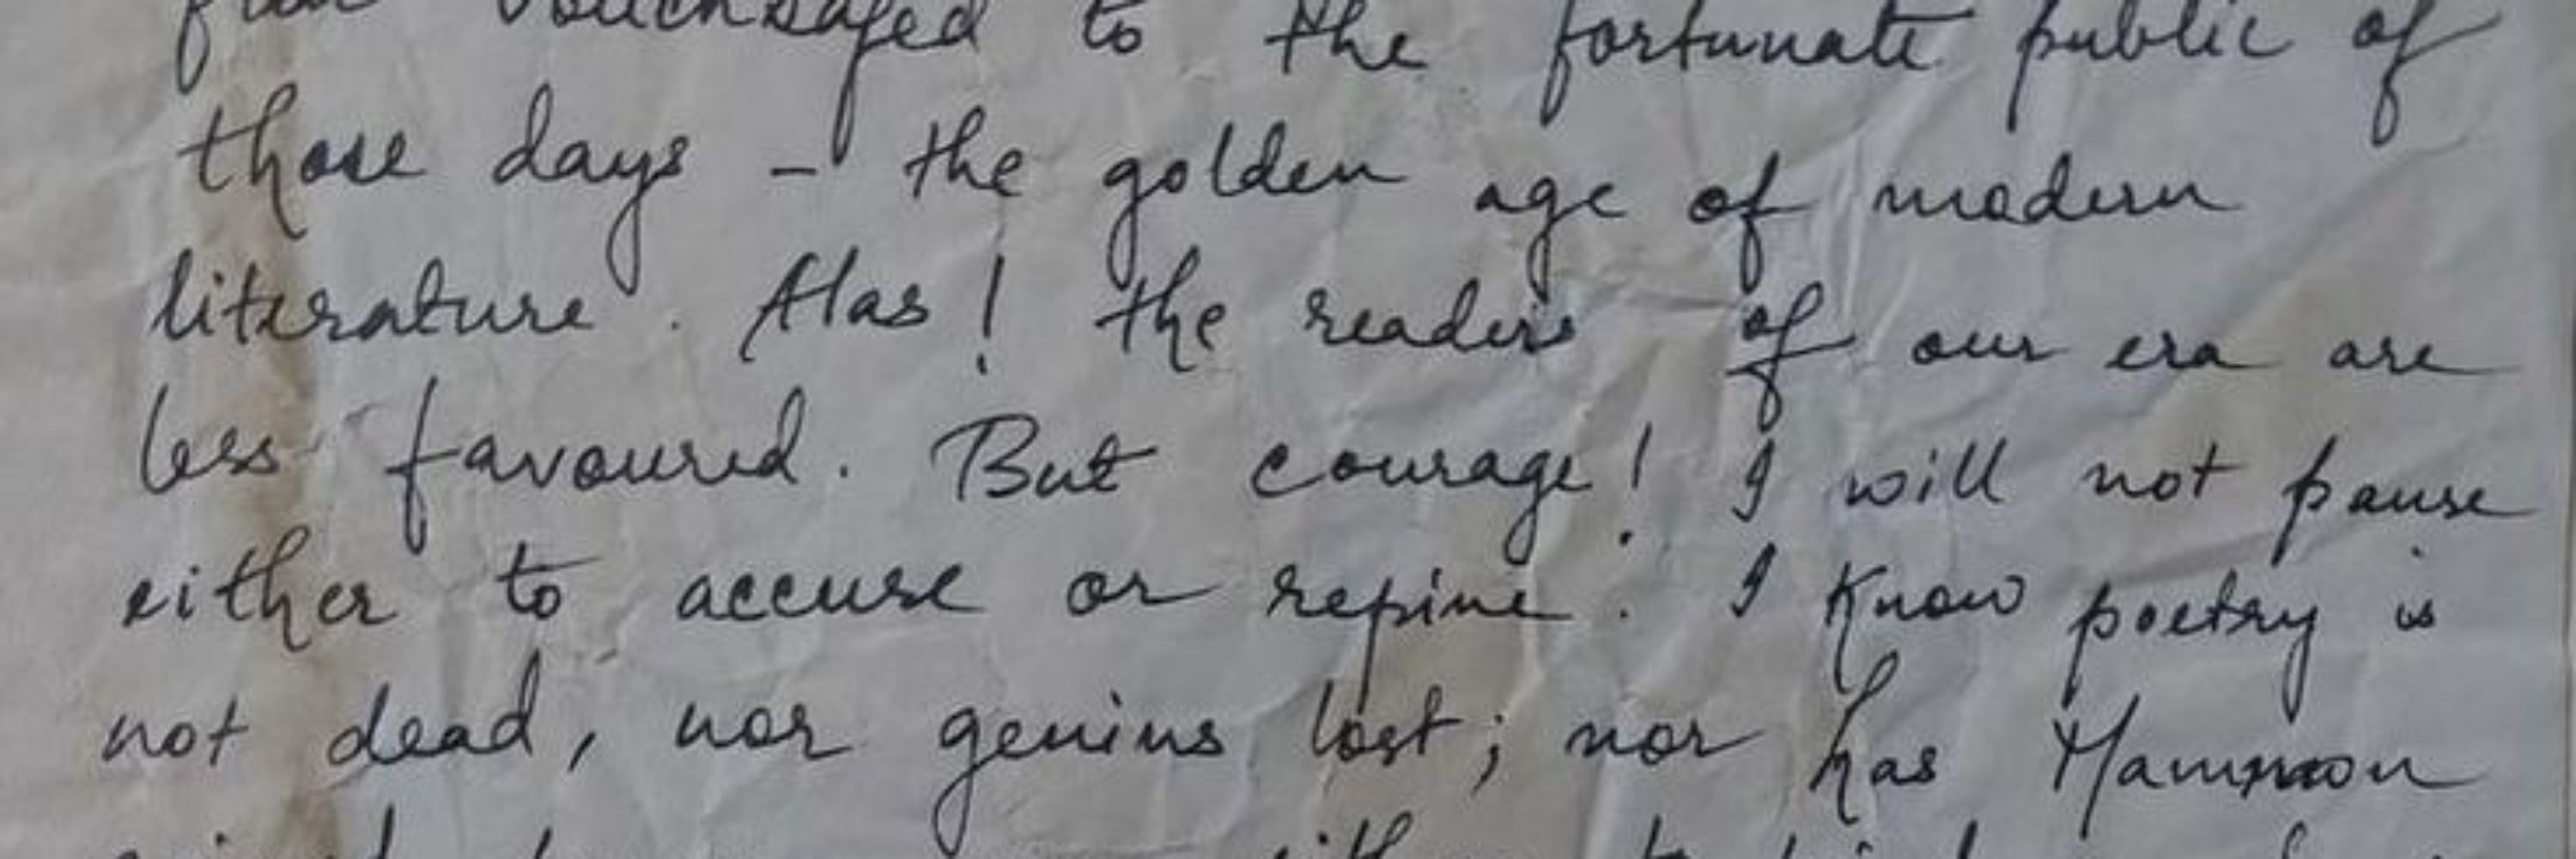 vouchsafed to the fortunate public of
those days - the golden age of modern
literature. Alas! the readers of our era are
less favoured. But courage! I will not pause
either to accuse or repine. I know poetry is
not dead, nor genius lost; nor has Mammon